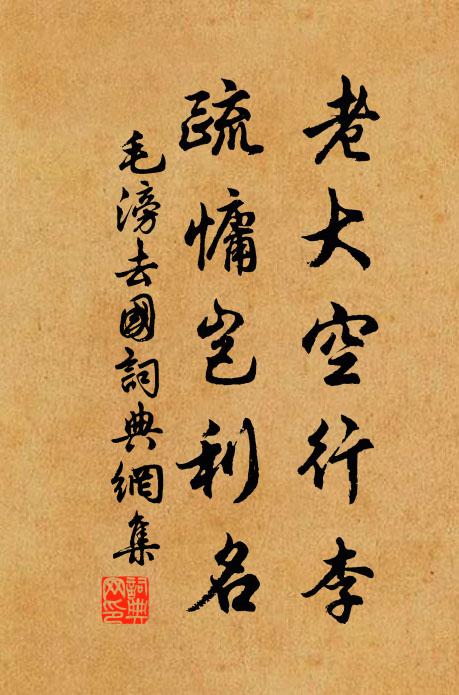 老大空行李
疏慵岂利名
毛滂去國詞典網集
詞典
网印